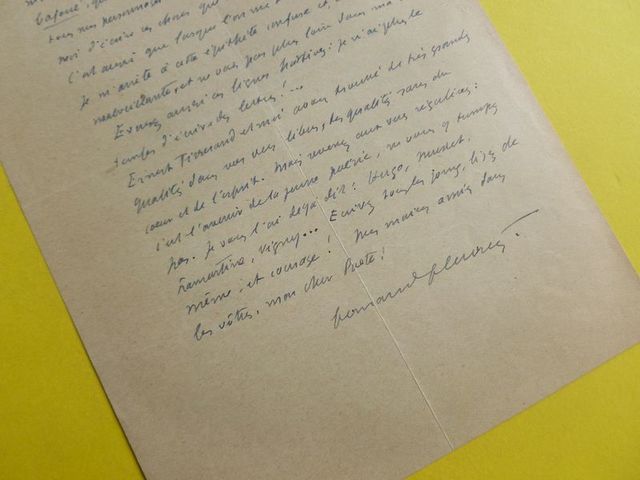 bafoué, qu
tous nos
moi d'écrire ces choses qu
C'est aussi que lorsque l'on me
je m'arrête à cette épithète confuse et,
malveillante, et ne vais pas plus loin dans ma
Excusez aussi ces lignes hâtives: je n'ai plus le
temps d'écrire des lettres!...
Ernest Tisserand et moi avons trouvé de très grandes
qualités dans vos vers libres, des qualités rares du
cœur et de l'esprit. Mais revenez aux vers réguliers:
c'est l'avenir de la jeune poésie, ne vous y trompez
pas. Je vous l'ai déjà dit: Hugo, Musset,
Lamartine, Vigny... Ecrivez tous les jours, lisez de
même: et courage! Mes mains amies dans
les vôtres, mon cher Poète!
Fernand Fleuret.